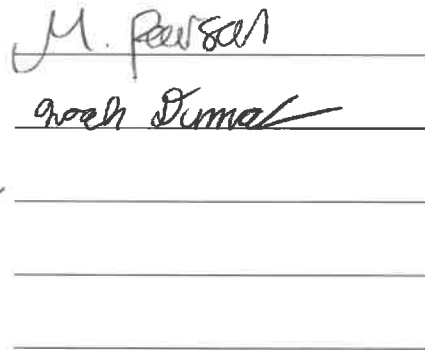 M. Pearson
Noah Dumal